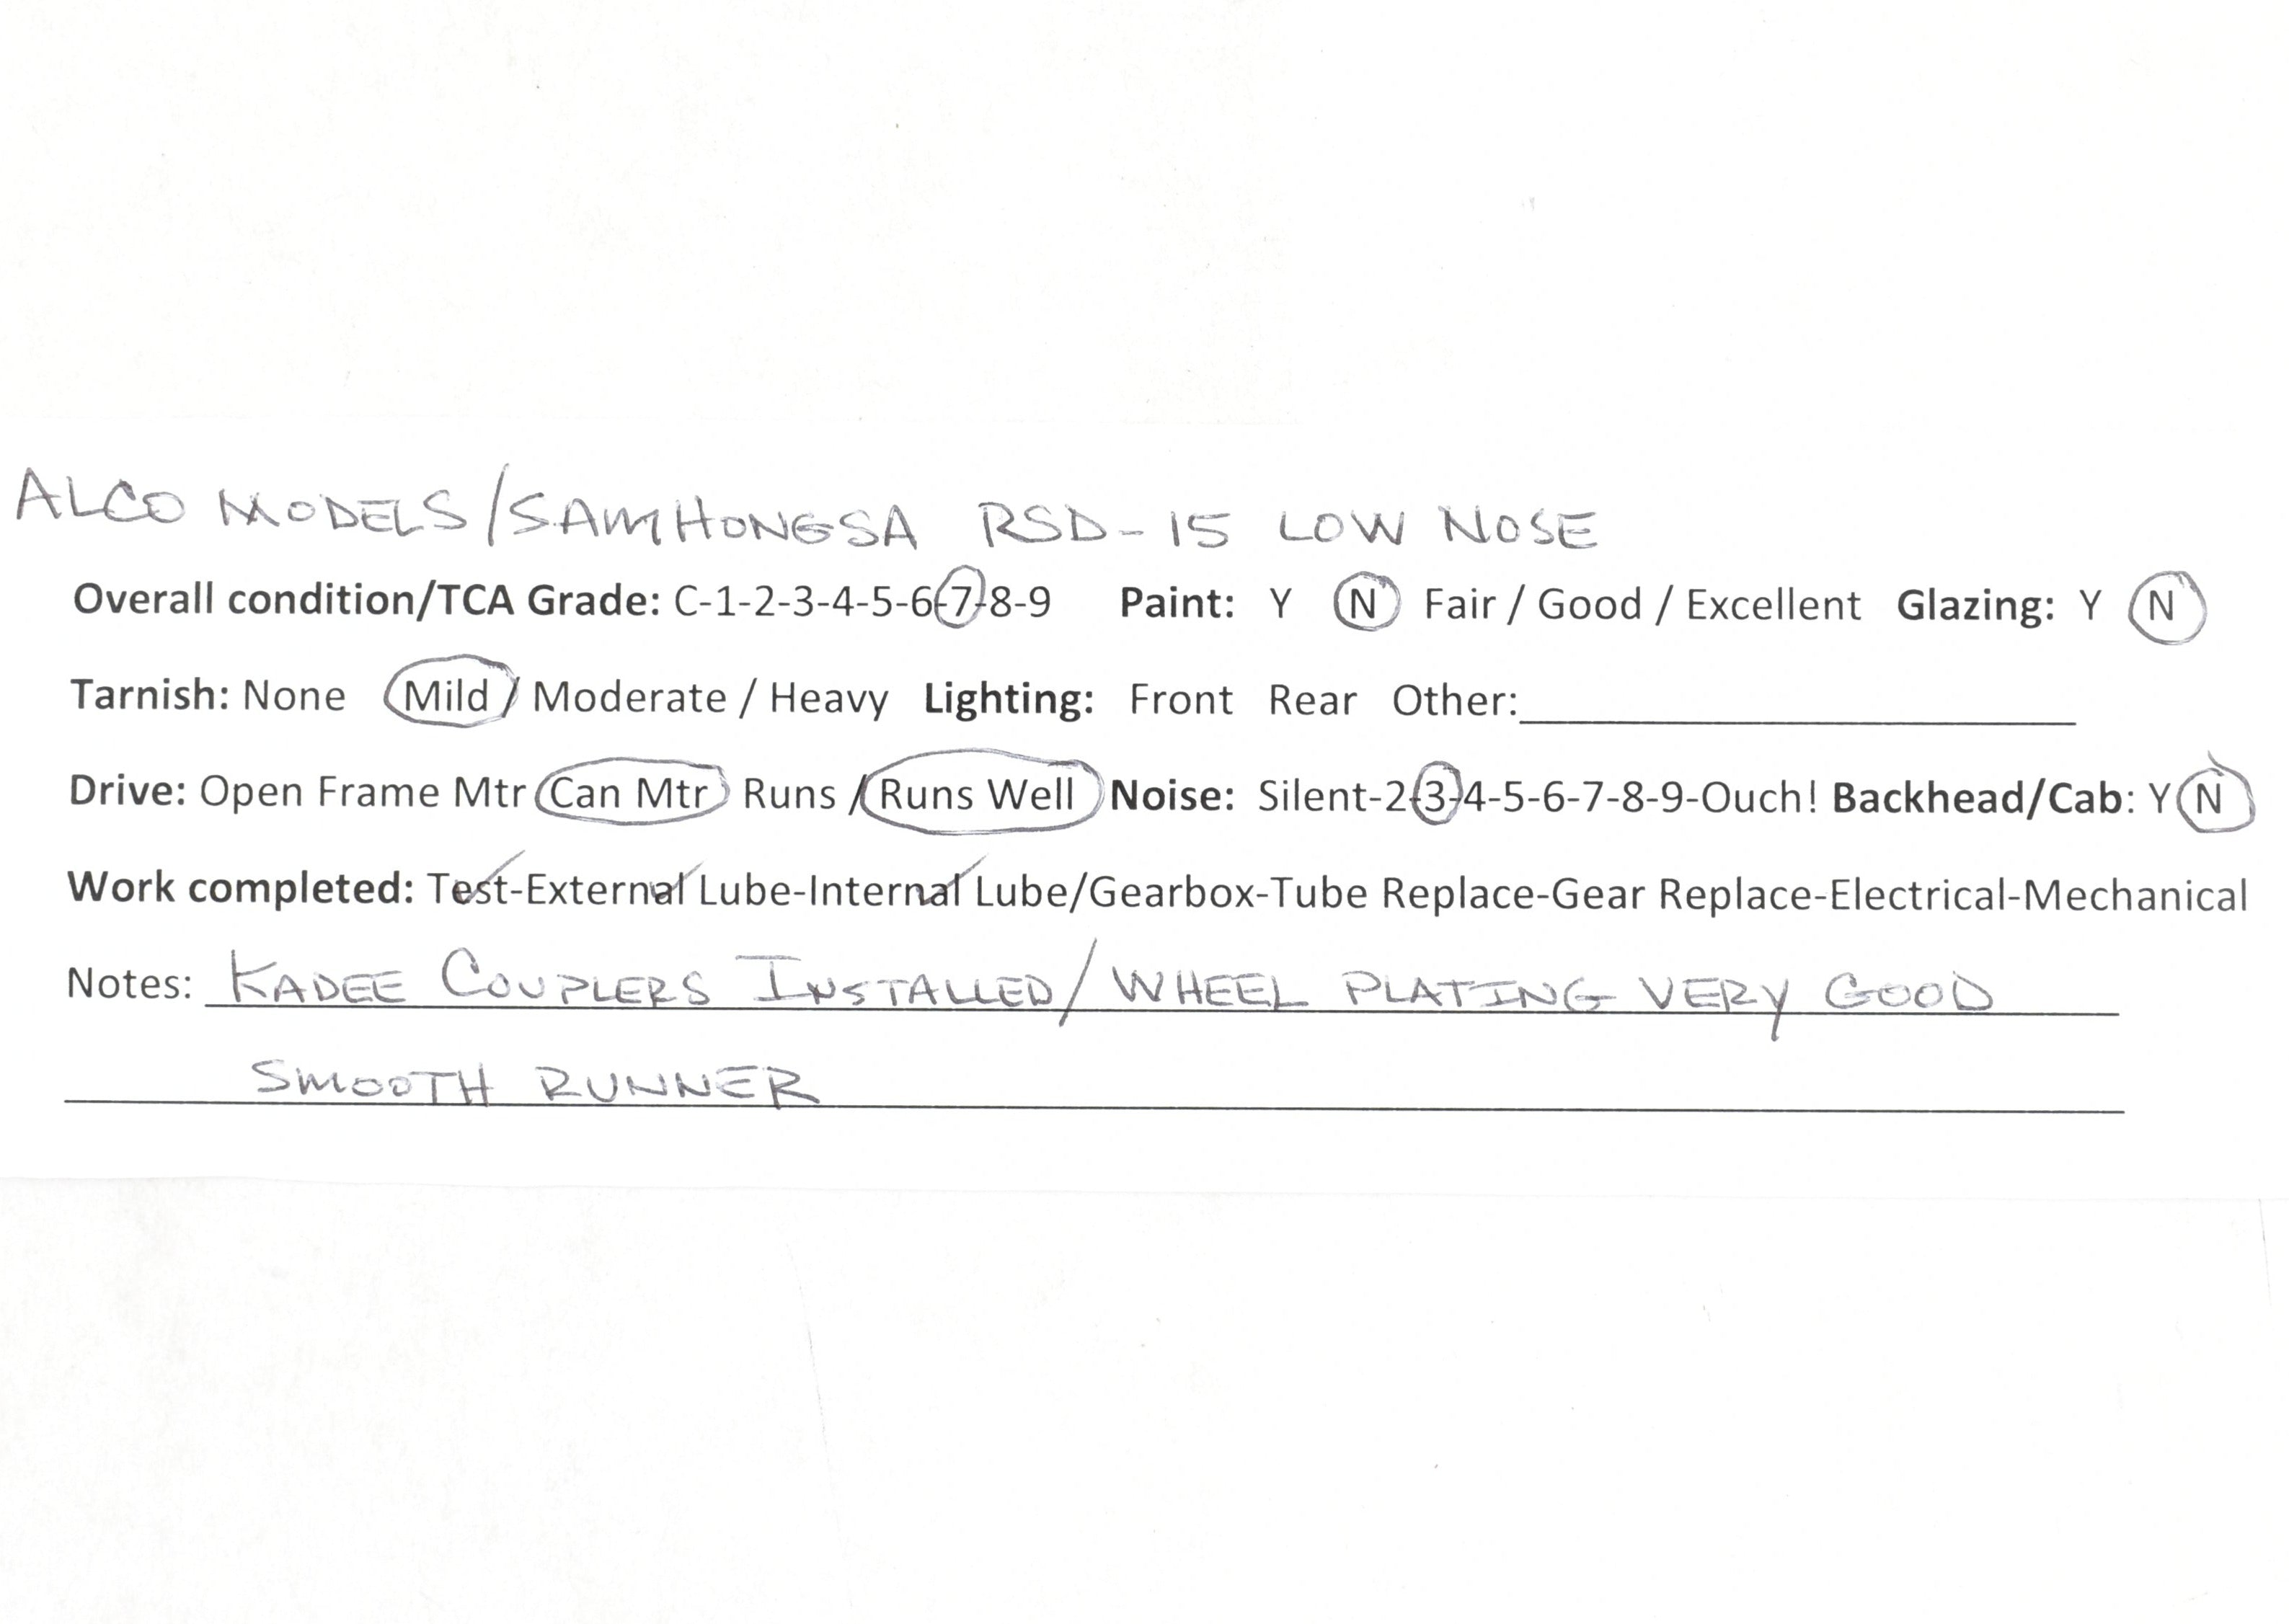 ALCO MODELS/SAMHONGSA RSD-15 LOW NOSE
Overall condition/TCA Grade: C-1-2-3-4-5-6-7-8-9 Paint: Y N Fair / Good / Excellent Glazing: Y N
Tarnish: None Mild / Moderate / Heavy Lighting: Front Rear Other:
Drive: Open Frame Mtr Can Mtr Runs / Runs Well Noise: Silent-2-3-4-5-6-7-8-9-Ouch! Backhead/Cab: Y N
Work completed: Test-External Lube-Internal Lube/Gearbox-Tube Replace-Gear Replace-Electrical-Mechanical
Notes: KADEE COUPLERS INSTALLED/WHEEL PLATING VERY GOOD
SMOOTH RUNNER